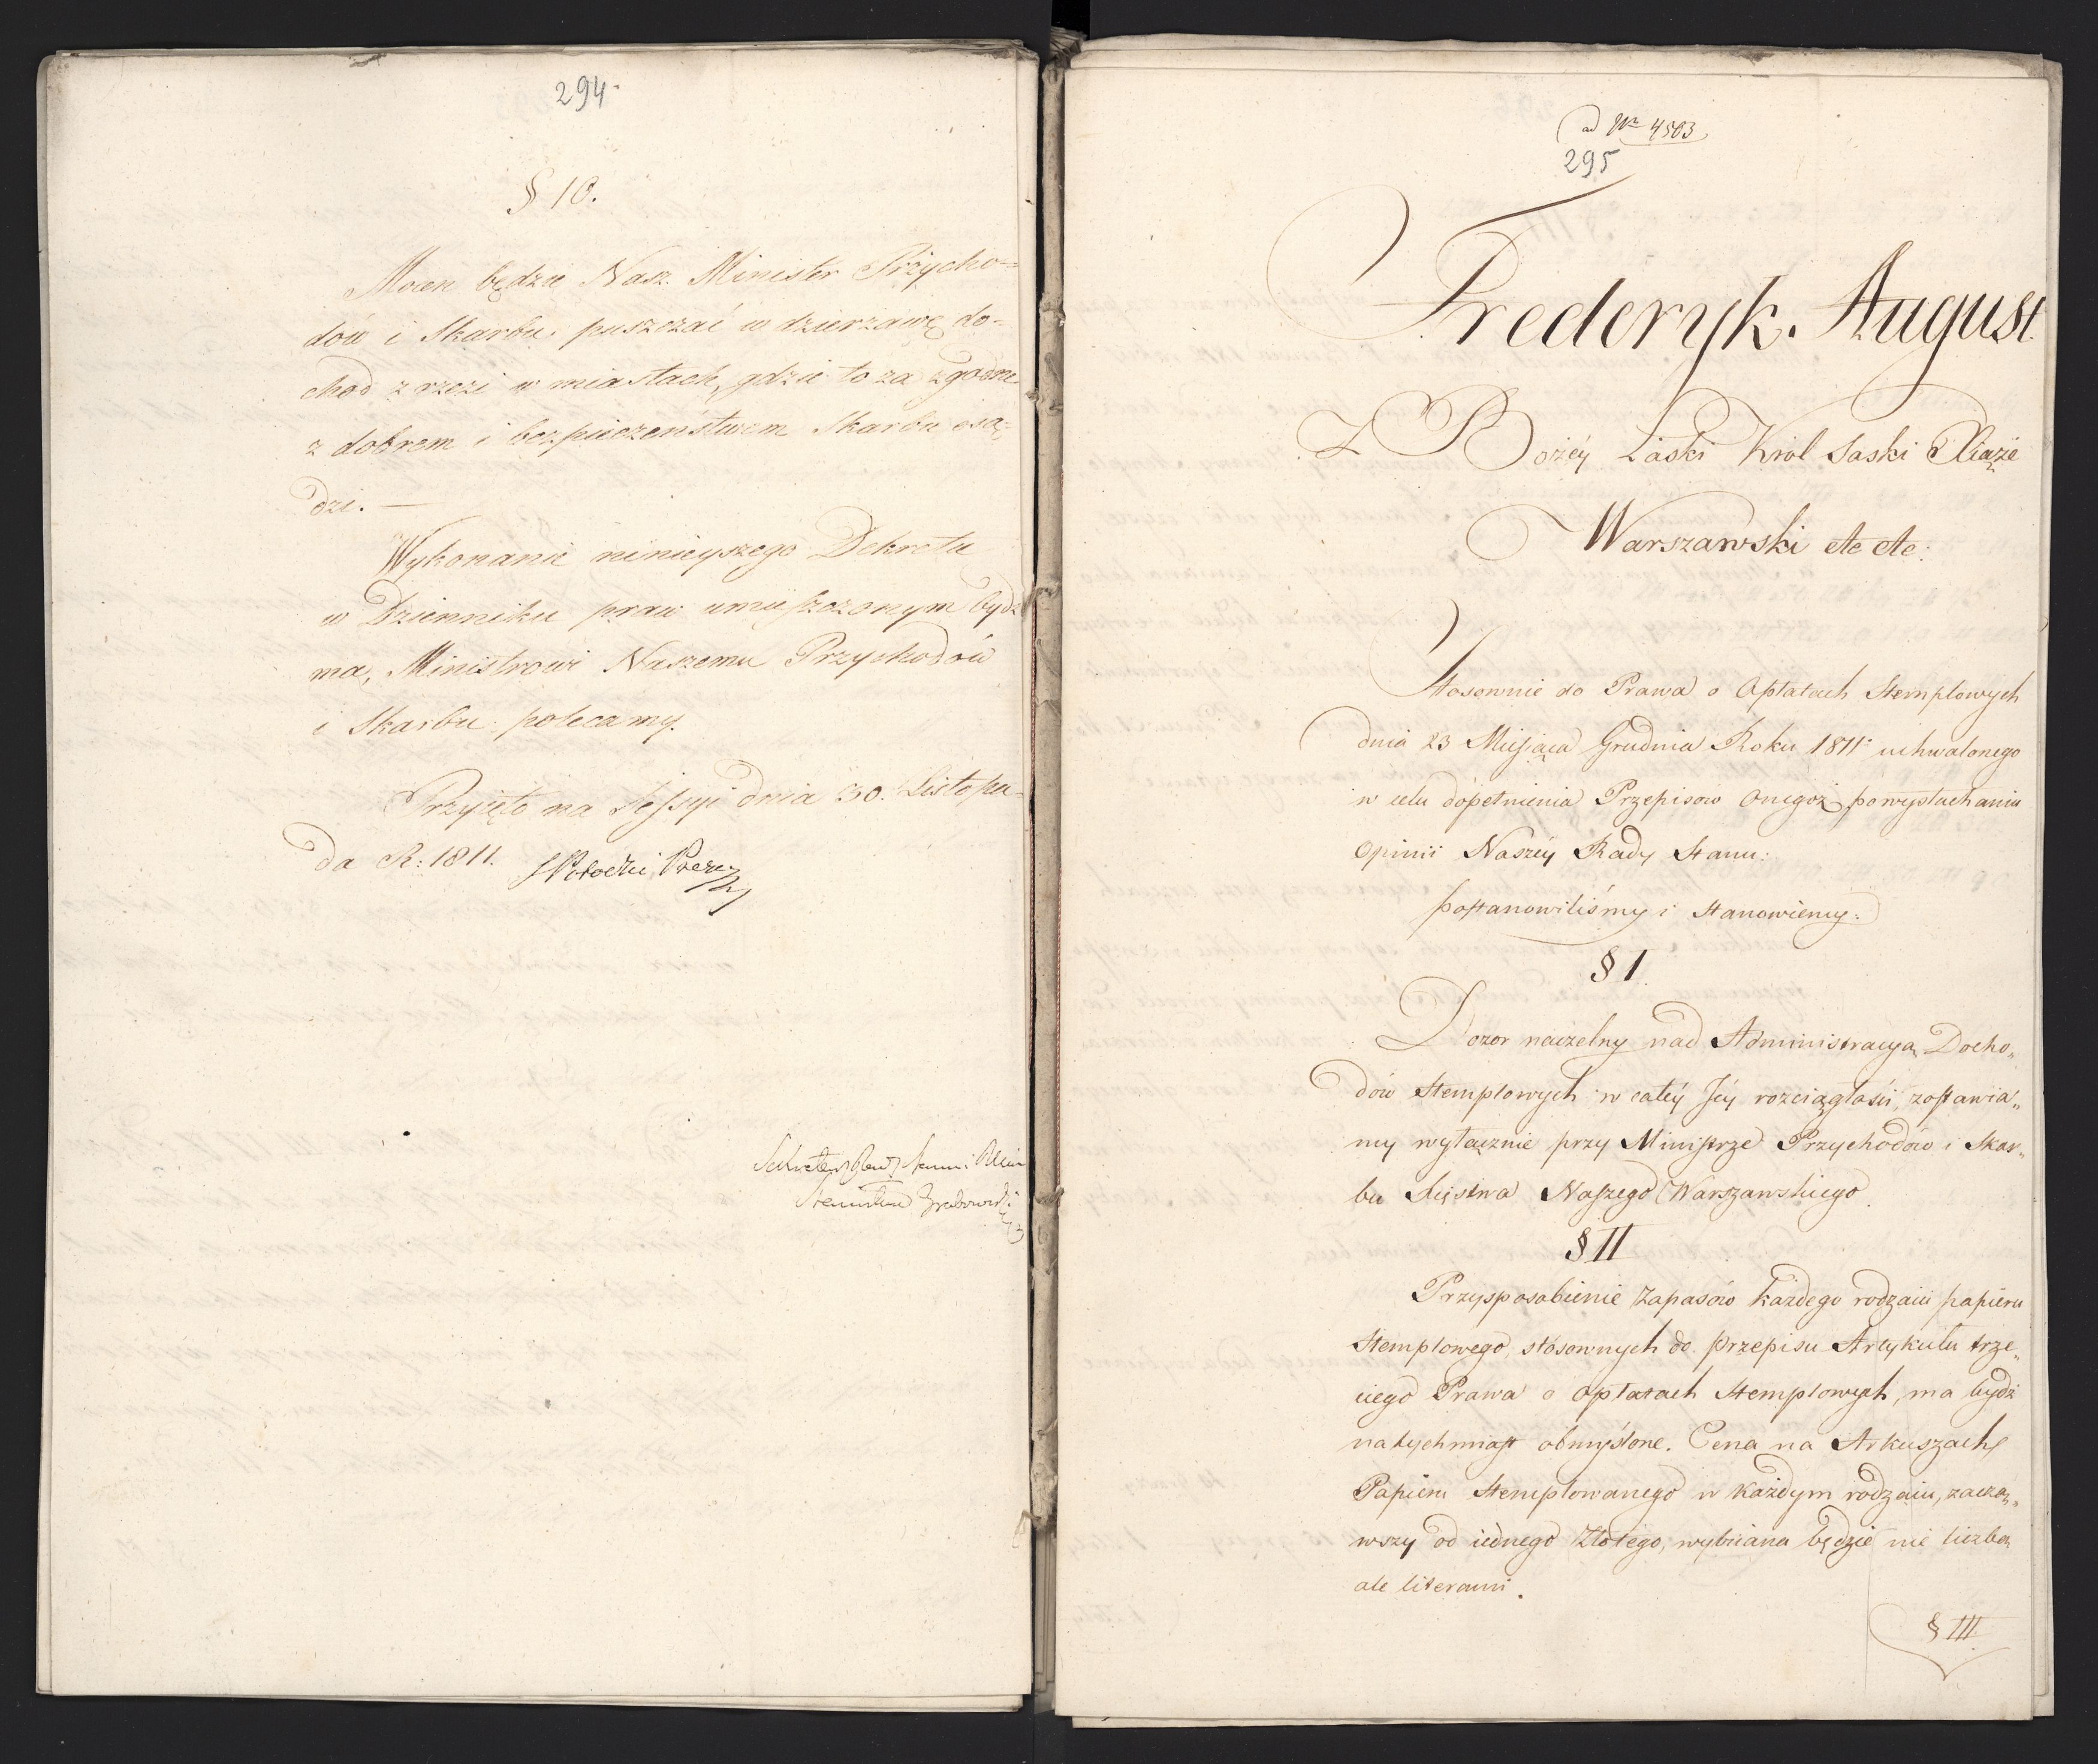 294.
§ 10.
Mocen będzie Nasz Minister Przycho=
dów i Skarbu puszczać w dzierzawę do=
chod z rzezi w miastach, gdzie to za zgodne
z dobrem i bezpieczeństwem Skarbu osą=
dzi. —
Wykonanie ninieyszego Dekretu
w Dzienniku praw umieszczonym bydz
ma, Ministrowi Naszemu Przychodów
i Skarbu polecamy.
Przyięto na Sessyi dnia 30. Listopa-
da R: 1811. SPotocki Prezes
Sekretarz Rady Stanu i
Stanisław Grabowski
ad Nr 4503
295
Frederyk August
Z Bożéy Łaski Krol Saski Xiąże
Warszawski etc etc:
Stosownie do Prawa o Opłatach Stemplowych
dnia 23 Miesiąca Grudnia Roku 1811 uchwalonego
w celu dopełnienia Przepisow onegoż, po wysłuchaniu
Opinii Naszéy Rady Stanu:
postanowiliśmy i Stanowiemy:
§ I.
Dozor naczelny nad Administracyą Docho„
dów Stemplowych w całéy Jéy rozciągłości, zostawia„
my wyłącznie przy Ministrze Przychodów i Skar„
bu Xięstwa Naszego Warszawskiego.
§ II
Przysposobienie Zapasów każdego rodzaiu papieru
Stemplowego, stosownych do przepisu Artykułu trze„
ciego Prawa o opłatach Stemplowych, ma bydź
natychmiast obmyślone. Cena na Arkuszach
Papieru Stemplowanego w każdym rodzaiu, zacząw„
wszy od iednego Złotego, wybiiana będzie nie liczbą
ale literami.
§ III.